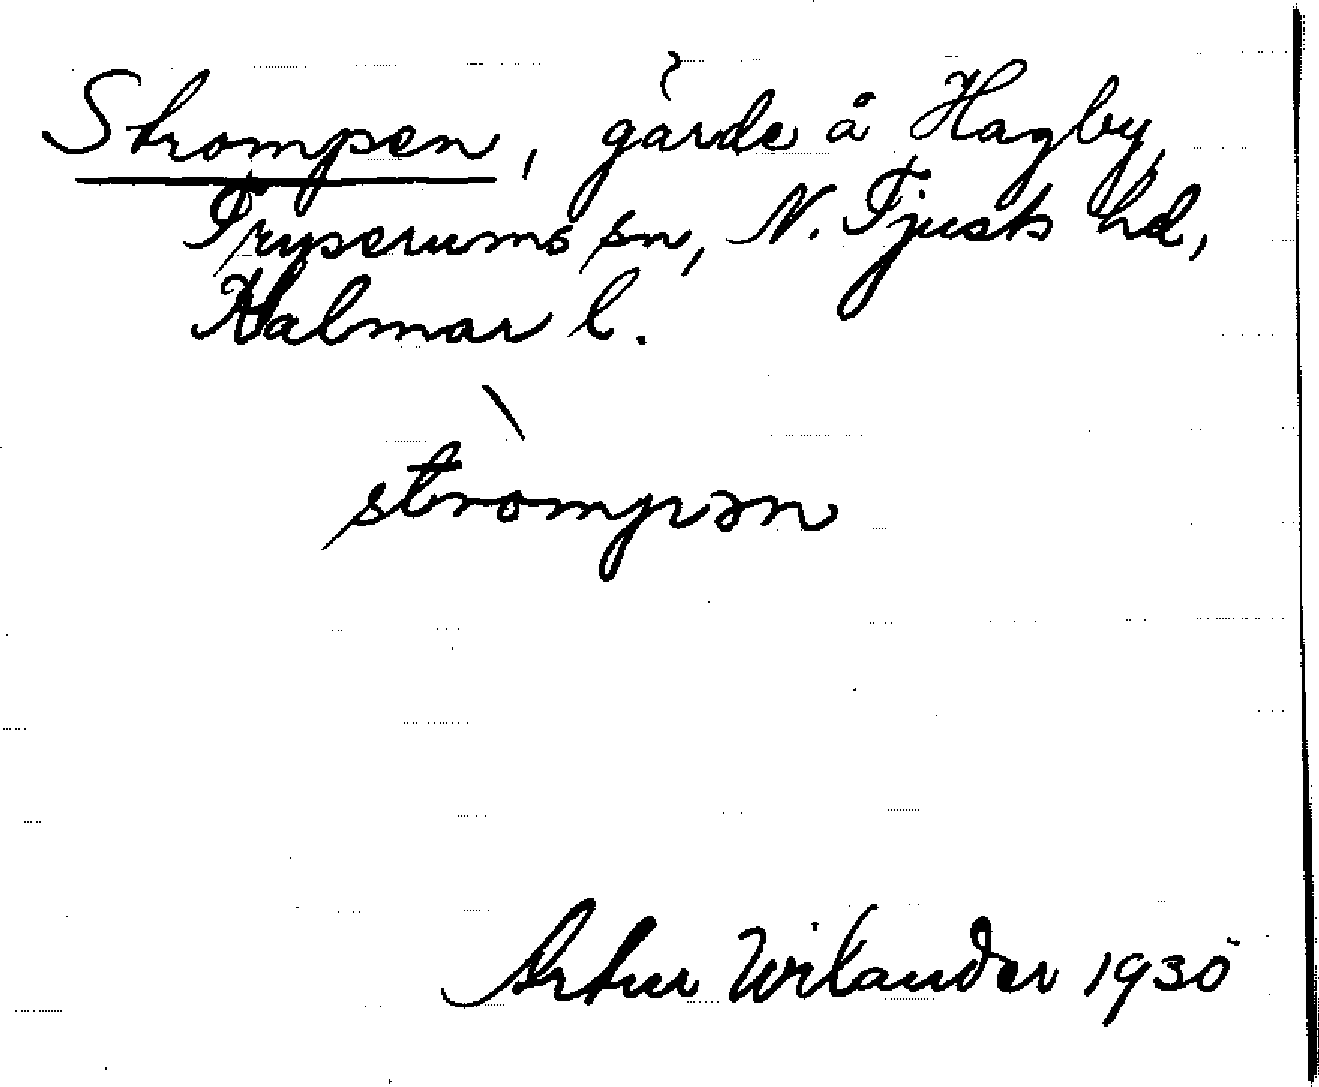 Strompen, gärde å Hagby,
Tryserums sn, N. Tjusts hd,
Kalmar l.
stròmpən
Artur Wilander 1930